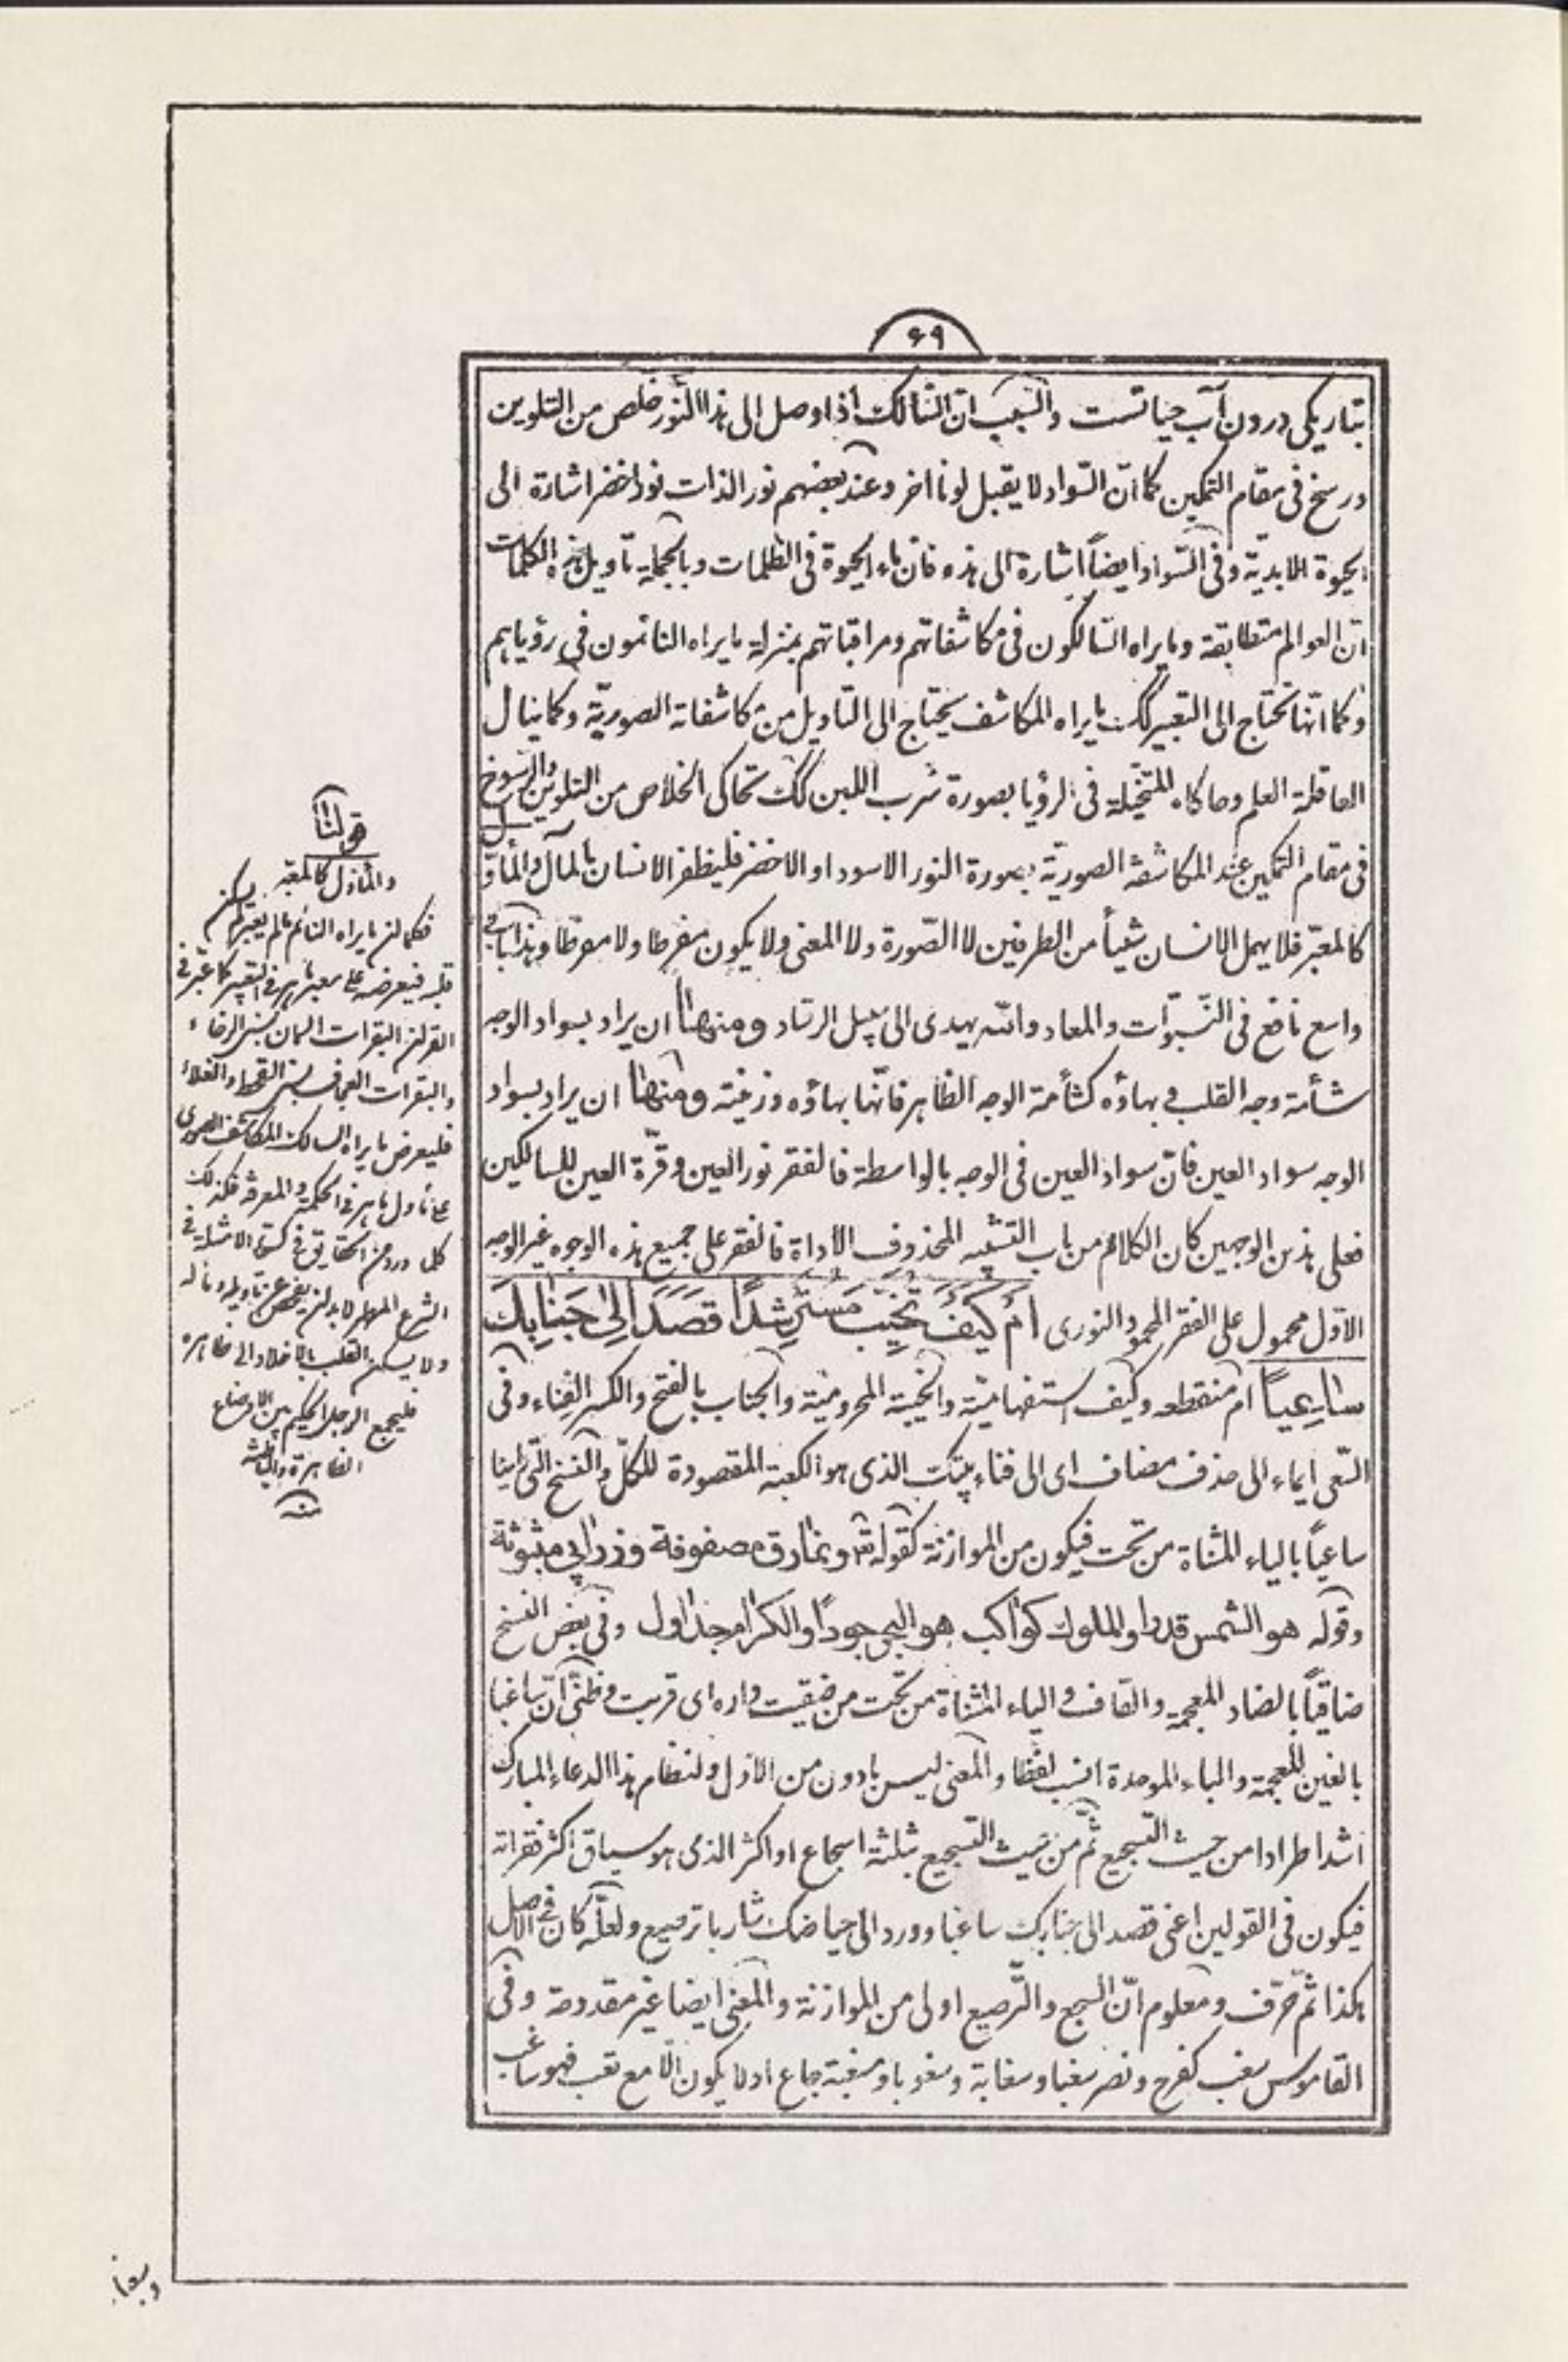 ۶۹
بتاریکی درون آب حیاتست والسبب ان السالک اذا وصل الی هذا النور خلص من التلوین
ورسخ فی مقام التمکین کما ان السواد لا یقبل لونا اخر وعند بعضهم نور الذات نور اخضر اشارة الی
الحیوة الابدیة وفی السواد ایضاً اشارة الی هذه فان ماء الحیوة فی الظلمات وبالجملة تأویل هذه الکلمات
ان العوالم متطابقة وما یراه السالکون فی مکاشفاتهم ومراقباتهم بمنزلة ما یراه النائمون فی رؤیاهم
وکما انها تحتاج الی التعبیر کک ما یراه المکاشف یحتاج الی التاویل من مکاشفاته الصوریة وکما ینال
العاقلة العلم وحاکاه المتخیلة فی الرؤیا بصورة شرب اللبن کک تحاکی الخلاص من التلوین والرسوخ
فی مقام التمکین عند المکاشفة الصوریة بصورة النور الاسود او الاخضر فلیظفر الانسان بالمآل والمأول
کالمعبر فلا یهمل الانسان شیئاً من الطرفین لا الصورة ولا المعنی ولا یکون مفرطا ولا مفرطا وهذا باب
واسع نافع فی النبوات والمعاد والله یهدی الی سبیل الرشاد ومنها ان یراد بسواد الوجه
شأمة وجه القلب فی بهاؤه کشأمة الوجه الظاهر فانها بهاؤه وزینته ومنها ان یراد بسواد
الوجه سواد العین فان سواد العین فی الوجه بالواسطة فالفقر نور العین وقرة العین للسالکین
فعلی هذین الوجهین کان الکلام من باب التشبیه المحذوف الاداة فالفقر علی جمیع هذه الوجوه غیر الوجه
الاول محمول علی الفقر المحمود النوری اَمْ کَیْفَ تُخَیِّبُ مُسْتَرْشِدًا قَصَدَ اِلیٰ جَنابِکَ
ساعِیاً ام منقطعه وکیف استفهامیة والخیبة المحرومیة والجناب بالفتح والکسر الفناء وفی
السعی ایماء الی حذف مضاف ای الی فناء بیتک الذی هو الکعبة المقصودة للکل والنسخ التی راینا
ساعیاً بالیاء المثناة من تحت فیکون من الموازنة کقوله تع ونمارق مصفوفة وزرابی مبثوثة
وقوله هو الشمس قدرا والملوک کواکب هو البحر جودًا والکرام جداول وفی بعض النسخ
ضاقیاً بالضاد المعجمة والقاف والیاء المثناة من تحت من ضقیت داره ای قربت وظنی ان ساغبا
بالغین المعجمة والباء الموحدة انسب لفظا والمعنی لیس بادون من الاول ولنظام هذا الدعاء المبارک
اشد اطرادا من حیث التسجیع ثم من حیث التسجیع بثلثة اسجاع او اکثر الذی هو سیاق اکثر فقراته
فیکون فی القولین اعنی قصد الی جنابک ساغبا وورد الی حیاضک شاربا ترصیع ولعله کان فی الاصل
هکذا ثم حرف ومعلوم ان السجع والترصیع اولی من الموازنة والمعنی ایضا غیر مقدوحة وفی
القاموس سغب کفرح ونصر سغبا وسغابة وسغوبا ومسغبة جاع او لا یکون الا مع تعب فهو ساغب
قولنا
والمأول کالمعبر
فکما ان ما یراه النائم ما لم یعبر لم یسکن
قلبه فیعرضه علی معبر ماهر فی التعبیر کما عبر فی
القرآن البقرات السمان بسنی الرخاء
والبقرات العجاف بسنی القحط والغلاء
فلیعرض ما یراه السالک المکاشف الصوری
علی مأول ماهر فی الحکمة والمعرفة فکذلک
کلما ورد من الحقایق فی کسوة الامثلة فی
الشرع المطهر لا بد ان یفحص عن تاویله ومآله
ولا یسکن القلب بالاخلاد الی ظاهره
فلیجمع الرجل الحکیم بین الاوضاع
الظاهرة والباطنة
منه
وسغبا